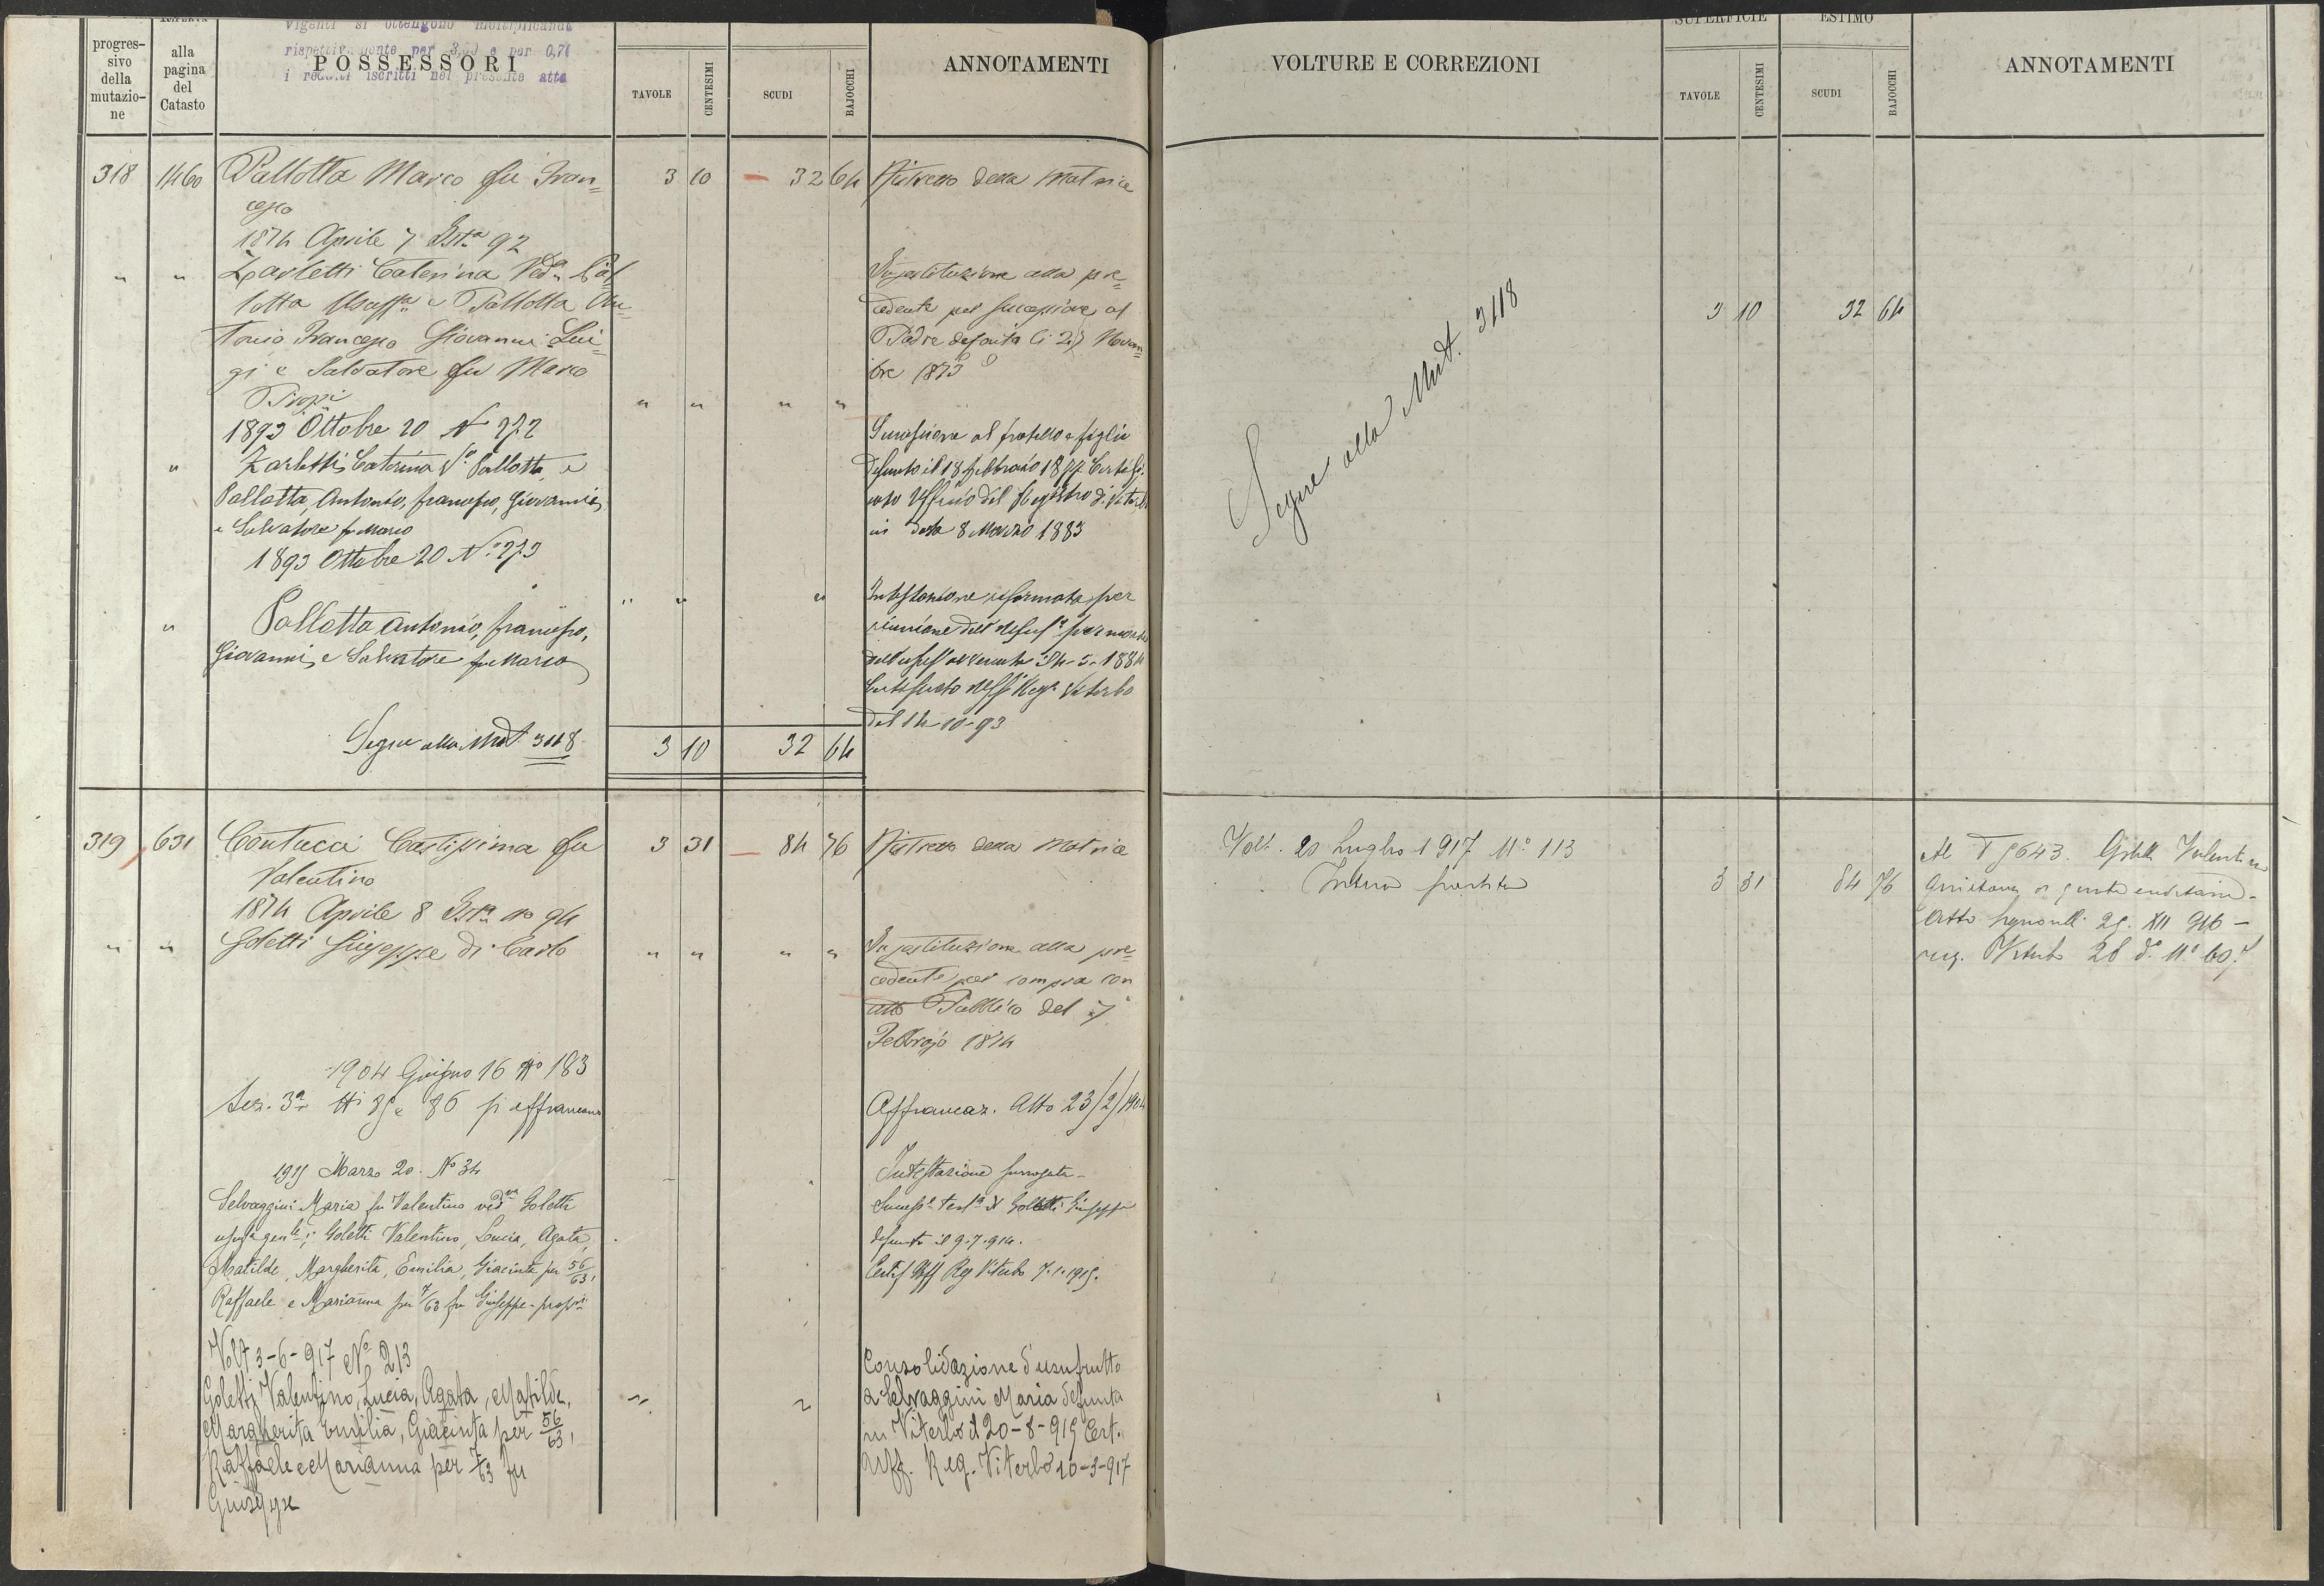 vigenti si ottengono moltiplicando
rispettivamente per 3,69 e per 0,74
i redditi iscritti nel presente atto
progres-
sivo
della
mutazio-
ne
alla
pagina
del
Catasto
POSSESSORI
TAVOLE
CENTESIMI
SCUDI
BAJOCCHI
ANNOTAMENTI
318 1460 Pallotta Marco fu Fran= 3 10 32 64 Ristretto della Matrice
cesco
1874 Aprile 7 Ista 92
" " Zarletti Caterina Veda Pal
lotta Usuffa e Pallotta An=
tonio Francesco Giovanni Lui=
gi e Salvatore fu Marco
Propi " " " "
In sostituzione alla pre=
cedente per successione al
Padre defonto li 27 Novem=
bre 1873
1893 Ottobre 20 N 272
" Zarletti Caterina Va Pallotta e
Pallotta, Antonio, Francesco, Giovanni,
e Salvatore fu Marco
Successione al fratello e figlio
defunto il 18 febbraio 1877. Certifi
cato Ufficio del Registro di Viterbo
in data 8 Marzo 1883
1893 Ottobre 20 No 273
" " "
" Pallotta Antonio, Francesco,
Giovanni, e Salvatore fu Marco
Intestazione riformata per
riunione dell' usufo per morte
dell' usuf avvenuta 24-5-1884
Certificato Uffo Rego Viterbo
del 14-10-93
Segue alla Mut 3118 3 10 32 64
319 631 Contucci Castissima fu 3 31 84 76 Ristretto della Matrice
Valentino
1874 Aprile 8 Ista No 94
" " Goletti Giuseppe di Carlo " " " "
In sostituzione alla pre=
cedente per compra con
atto Pubblico del 7
Febbrajo 1874
1904 Giugno 16 No 183
Sez. 3a Ni 85 e 86 si affrancano
Affrancaz. Atto 23/2/1904
1915 Marzo 20. No 34
Selvaggini Maria fu Valentino veda Goletti
usufa genle; Goletti Valentino, Lucia, Agata,
Matilde, Margherita, Emilia, Giacinta per 56/63,
Raffaele e Marianna per 7/63 fu Giuseppe - propri
Intestazione surrogata -
Success. testa di Goletti Giuseppe
defunto il 9.7.914.
Certif Uff Reg Viterbo 7.1.1915.
Volt 3-6-917 No 213
Goletti Valentino, Lucia, Agata, Matilde,
Margherita Emilia, Giacinta per 56/63,
Raffaele e Marianna per 7/63 fu
Giuseppe
Consolidazione d'usufrutto
a Selvaggini Maria defunta
in Viterbo il 20-8-915 Cert.
Uff. Reg. Viterbo 20-3-917
VOLTURE E CORREZIONI
SUPERFICIE
ESTIMO
TAVOLE
CENTESIMI
SCUDI
BAJOCCHI
ANNOTAMENTI
Segue alla Mut. 3118
3 10 32 64
Volt. 20 Luglio 1917 No 113
Intera partita
3 31 84 76
Al 5643. Goletti Valentino
Atto 29. XII 916 -
reg. Viterbo 28 do No 607